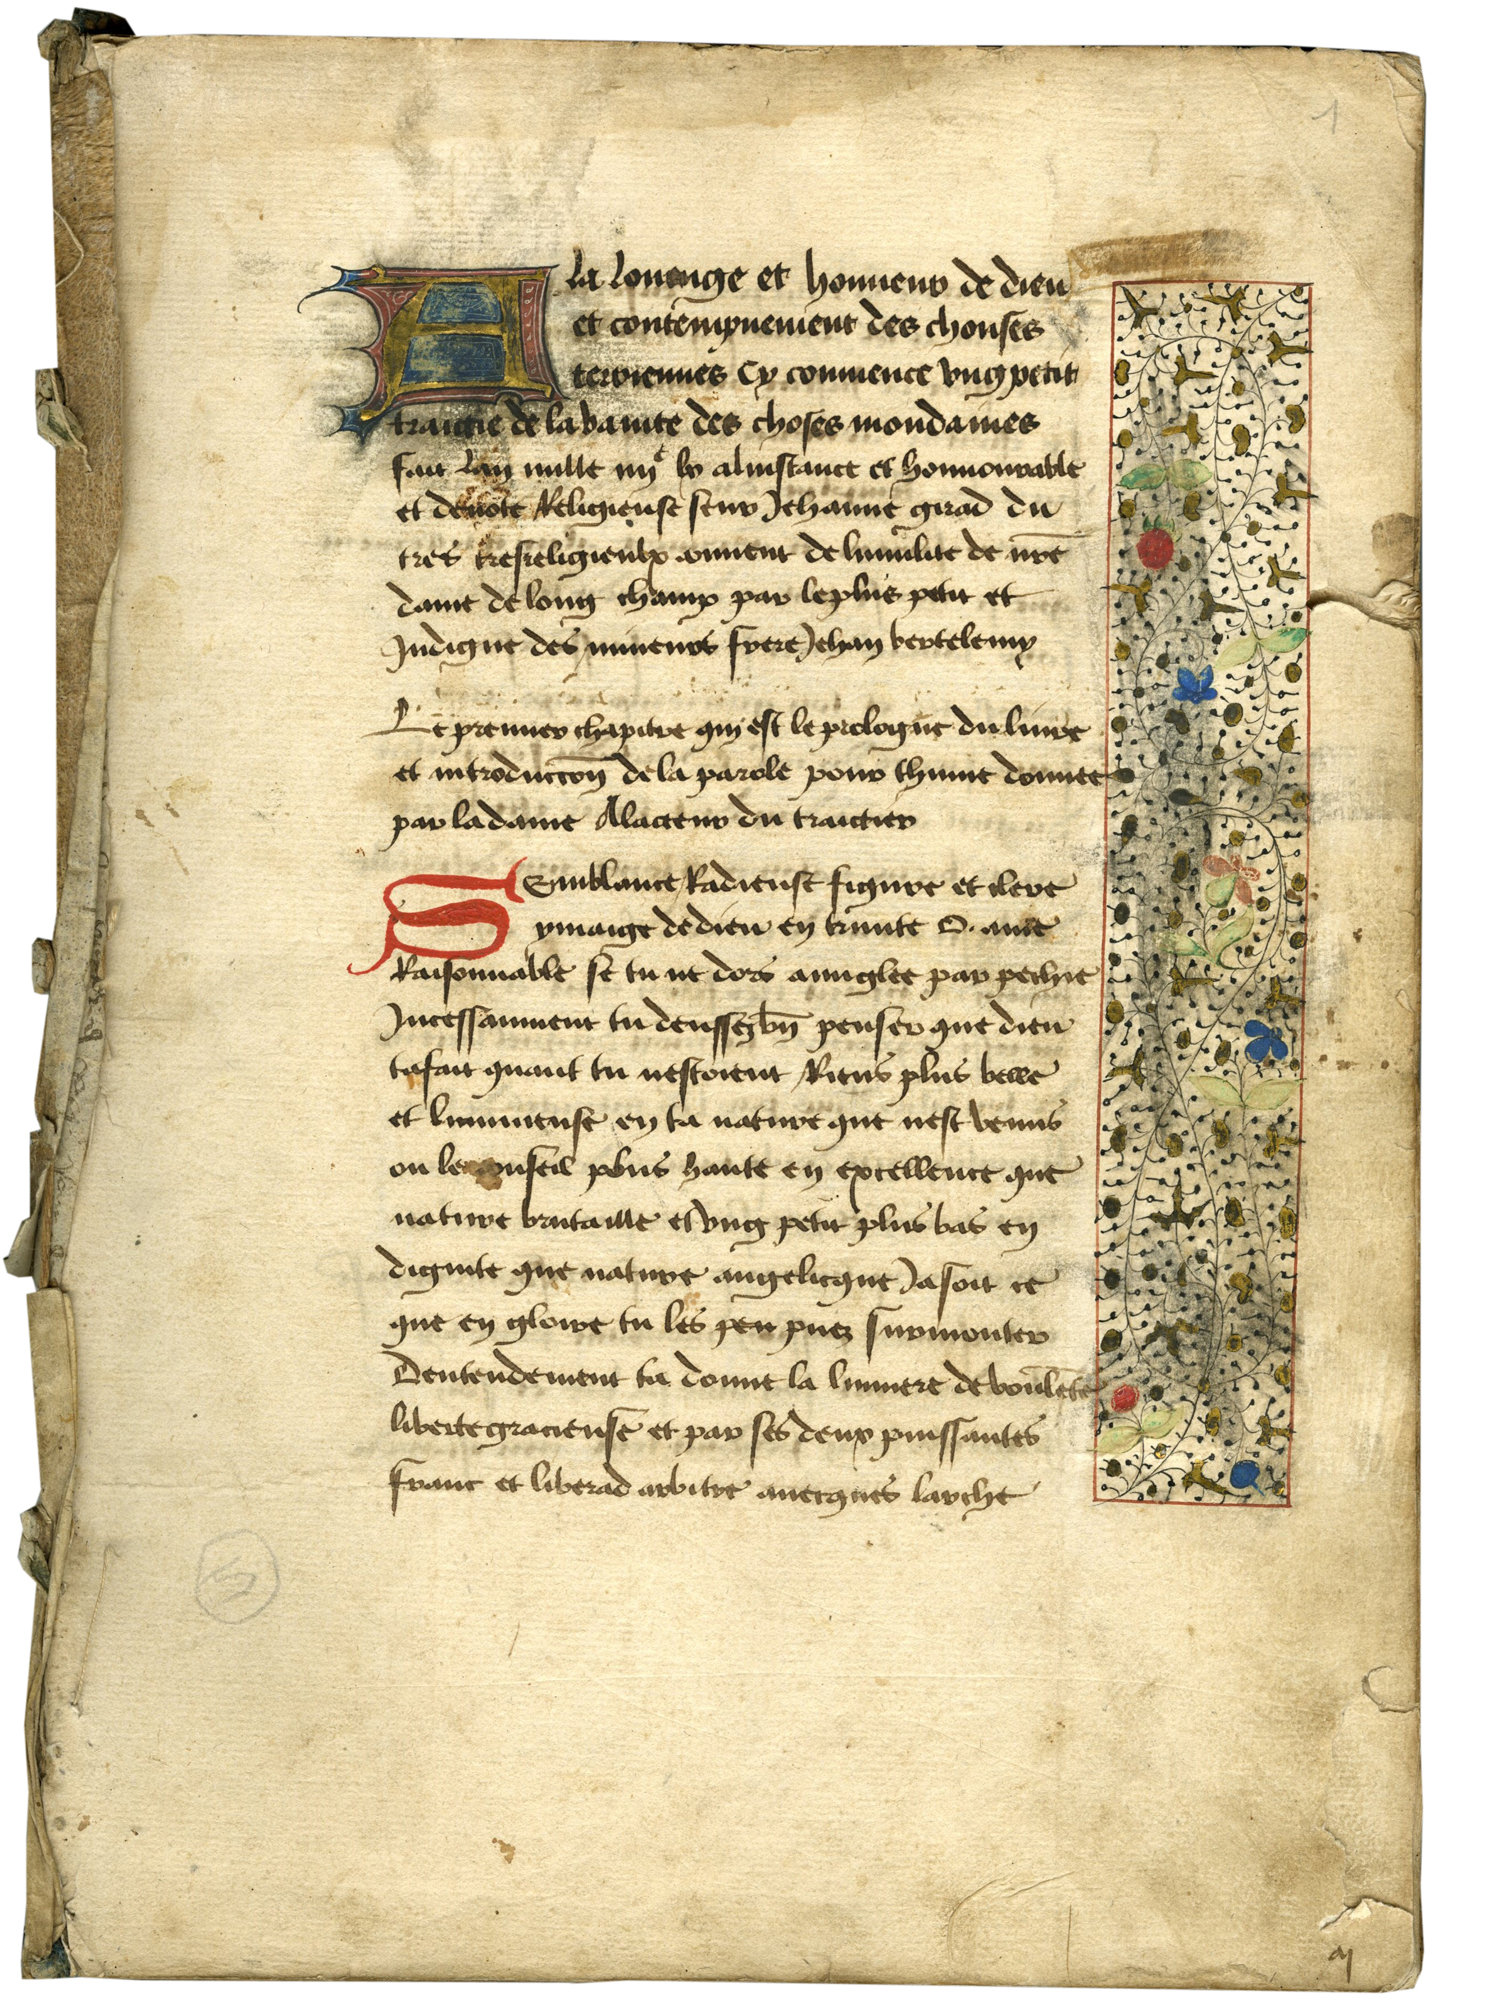 1
A la louenge et honneur de dieu
et contempnement des chouses
terriennes Cy commence vng petit
traictie de la vanite des choses mondaines
fait lan mille iiijc lx alinstance et honnourable
et deuote Religieuse seur Jehanne girad du
tres tresreligieulx conuent de lumilite de nre
dame de long champ par le plus petit et
Indigne des mineurs frere Jehan bertelemy
Le premier chapitre qui est le prologue du liure
et introduccon de la parole pour theume donnee
par la dame Alacteur du traictier
SEmblance Radieuse figure et clere
ymaige de dieu en trinite O ame
Raisonnable se tu ne dors auuglee par pechie
Incessanment tu deussez bn penser que dieu
ta fait quant tu nestoient Riens plus belle
et lumineuse en ta nature que nest venus
ou le conseil plus haute en excellence que
nature brutaille et vng petit plus bas en
dignite que nature angelicque Ja soit ce
que en gloire tu les peu puez surmonter
Dentendement ta donne la lumiere de voulete
liberte gracieuse et par ses deux puissantes
franc et liberad arbitre auecques larche
aj